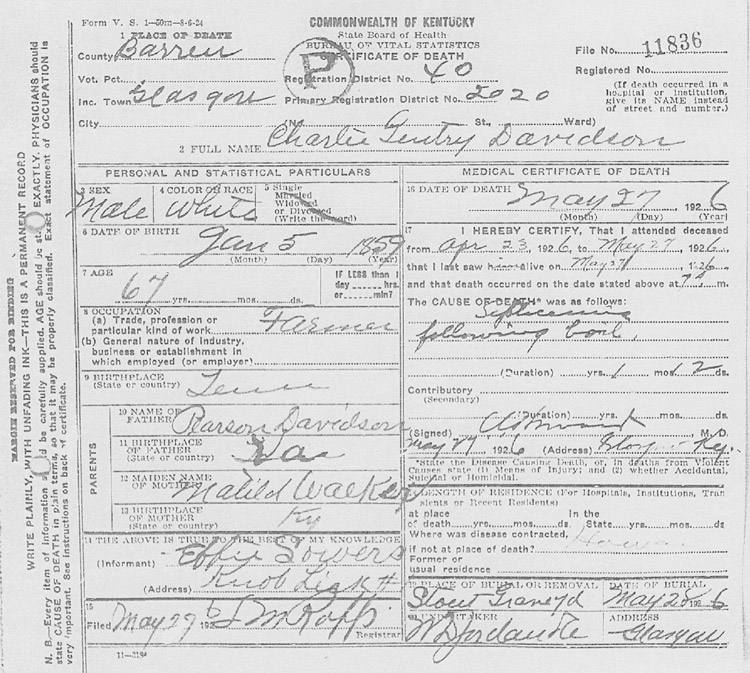 Form V. S. 1—50m—8-6-24
COMMONWEALTH OF KENTUCKY
State Board of Health
BUREAU OF VITAL STATISTICS
CERTIFICATE OF DEATH
P
File No. 11836
Registered No.
(If death occurred in a hospital or institution, give its NAME instead of street and number.)
1 PLACE OF DEATH
County Barren
Vot. Pct.
Registration District No. 40
Inc. Town Glasgow
Primary Registration District No. 2020
City (No. St., Ward)
2 FULL NAME Charlie Gentry Davidson
PERSONAL AND STATISTICAL PARTICULARS
3 SEX Male
4 COLOR OR RACE White
5 Single
Married
Widowed
or Divorced
(Write the word)
6 DATE OF BIRTH Jan 5 1859
(Month) (Day) (Year)
7 AGE 67 yrs. mos. ds.
IF LESS than 1 day hrs. or min?
8 OCCUPATION
(a) Trade, profession or particular kind of work Farmer
(b) General nature of industry, business or establishment in which employed (or employer)
9 BIRTHPLACE
(State or country) Tenn
PARENTS
10 NAME OF FATHER Pearson Davidson
11 BIRTHPLACE OF FATHER
(State or country)
12 MAIDEN NAME OF MOTHER Matild Walker
13 BIRTHPLACE OF MOTHER
(State or country) Ky
14 THE ABOVE IS TRUE TO THE BEST OF MY KNOWLEDGE
(Informant) Effie Sowers
(Address) Knob Lick
15
Filed May 29 1926
Registrar
11—3184
MEDICAL CERTIFICATE OF DEATH
16 DATE OF DEATH May 27 1926
(Month) (Day) (Year)
17 I HEREBY CERTIFY, That I attended deceased
from Apr 23, 1926, to May 27, 1926,
that I last saw h alive on May 27, 1926,
and that death occurred on the date stated above at 7 m.
The CAUSE OF DEATH* was as follows:
Septicemia
following boil,
(Duration) yrs. 1 mos. 2 ds.
Contributory
(Secondary)
(Duration) yrs. mos. ds.
(Signed) M. D.
May 27, 1926 (Address) Ky.
*State the Disease Causing Death, or, in deaths from Violent Causes state (1) Means of Injury; and (2) whether Accidental, Suicidal or Homicidal.
18 LENGTH OF RESIDENCE (For Hospitals, Institutions, Transients or Recent Residents)
at place of death yrs. mos. ds. In the State yrs. mos. ds
Where was disease contracted,
if not at place of death?
Former or
usual residence
19 PLACE OF BURIAL OR REMOVAL Stout Graveyd
DATE OF BURIAL May 28 1926
20 UNDERTAKER
ADDRESS Glasgow
MARGIN RESERVED FOR BINDING
WRITE PLAINLY, WITH UNFADING INK—THIS IS A PERMANENT RECORD
N. B.—Every item of information should be carefully supplied. AGE should be stated EXACTLY. PHYSICIANS should
state CAUSE OF DEATH in plain terms, so that it may be properly classified. Exact statement of OCCUPATION is
very important. See instructions on back of certificate.